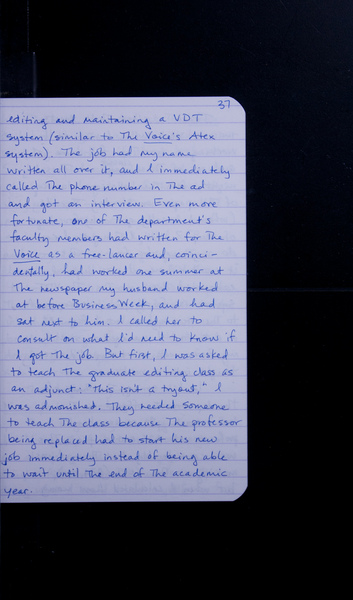 37
editing and maintaining a VDT
system (similar to The Voice's Atex
system). The job had my name
written all over it, and I immediately
called The phone number in The ad
and got an interview. Even more
fortunate, one of The department's
faculty members had written for The
Voice as a free-lancer and, coinci-
dentally, had worked one summer at
The newspaper my husband worked
at before Business Week, and had
sat next to him. I called her to
consult on what I'd need to know if
I got The job. But first, I was asked
to teach The graduate editing class as
an adjunct: "This isn't a tryout," I
was admonished. They needed someone
to teach The class because The professor
being replaced had to start his new
job immediately instead of being able
to wait until the end of The academic
year.